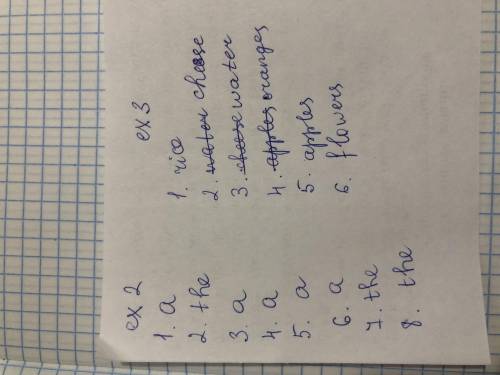 ex 2
1. a
2. the
3. a
4. a
5. a
6. a
7. the
8. the
ex 3
1. rice
2. water cheese
3. cheese water
4. apples oranges
5. apples
6. flowers